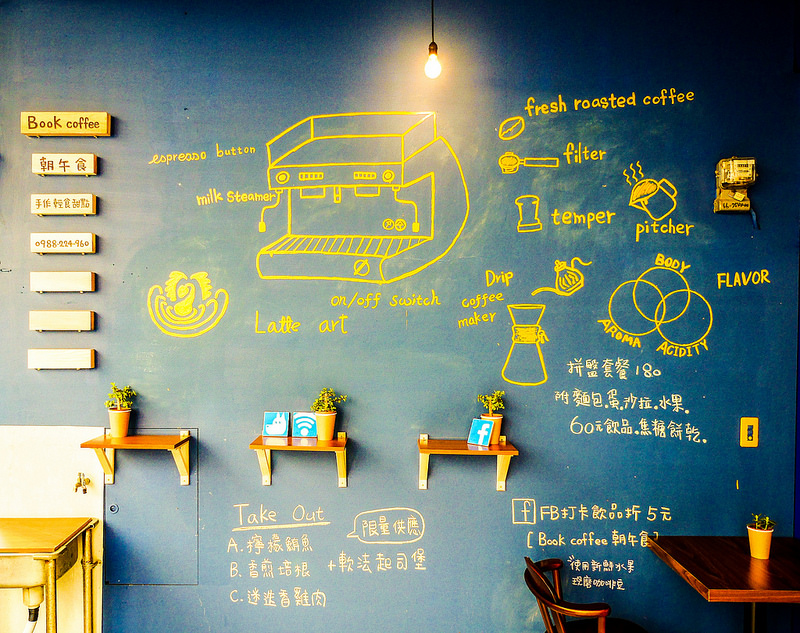 Book coffee
朝午食
手作輕食甜點
0988-224-960
espresso button
milk Steamer
on/off switch
Latte art
fresh roasted coffee
filter
temper
pitcher
Drip
coffee
maker
BODY
FLAVOR
AROMA
ACIDITY
拼盤套餐 180
附麵包.蛋.沙拉.水果.
60元飲品.焦糖餅乾.
Take Out
限量供應
A. 檸檬鯛魚
B. 香煎培根
C. 迷迭香雞肉
+ 軟法起司堡
f
f FB打卡飲品折 5元
[ Book coffee 朝午食]
使用新鮮水果
現磨咖啡豆